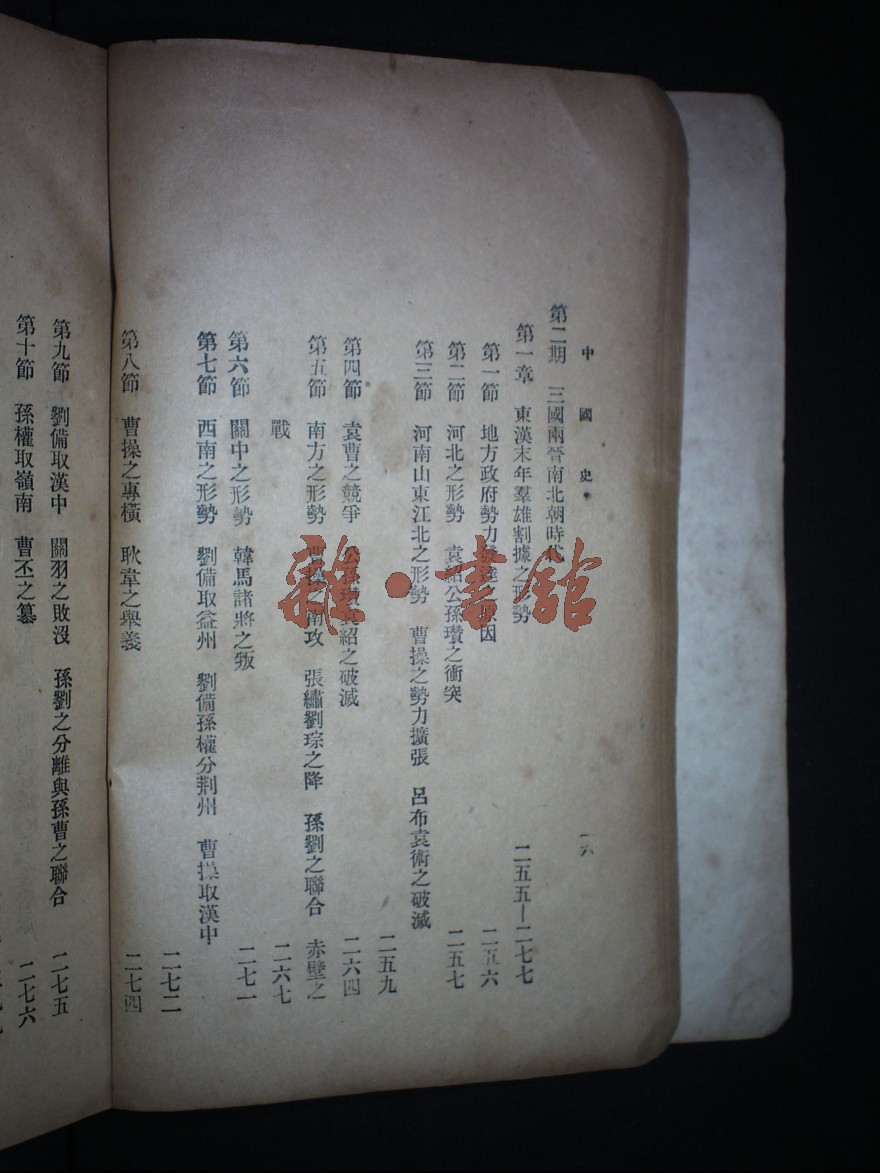 中國史
一六
第二期 三國兩晉南北朝時代
第一章 東漢末年羣雄割據之形勢 二五五—二七七
第一節 地方政府勢力發達之原因 二五六
第二節 河北之形勢 袁紹公孫瓚之衝突 二五七
第三節 河南山東江北之形勢 曹操之勢力擴張 呂布袁術之破滅
二五九
第四節 袁曹之競爭 公孫瓚袁紹之破滅 二六四
第五節 南方之形勢 曹操之南攻 張繡劉琮之降 孫劉之聯合 赤壁之
戰 二六七
第六節 關中之形勢 韓馬諸將之叛 二七一
第七節 西南之形勢 劉備取益州 劉備孫權分荆州 曹操取漢中
二七二
第八節 曹操之專橫 耿韋之舉義 二七四
第九節 劉備取漢中 關羽之敗沒 孫劉之分離與孫曹之聯合 二七五
第十節 孫權取嶺南 曹丕之篡 二七六
雜·書館